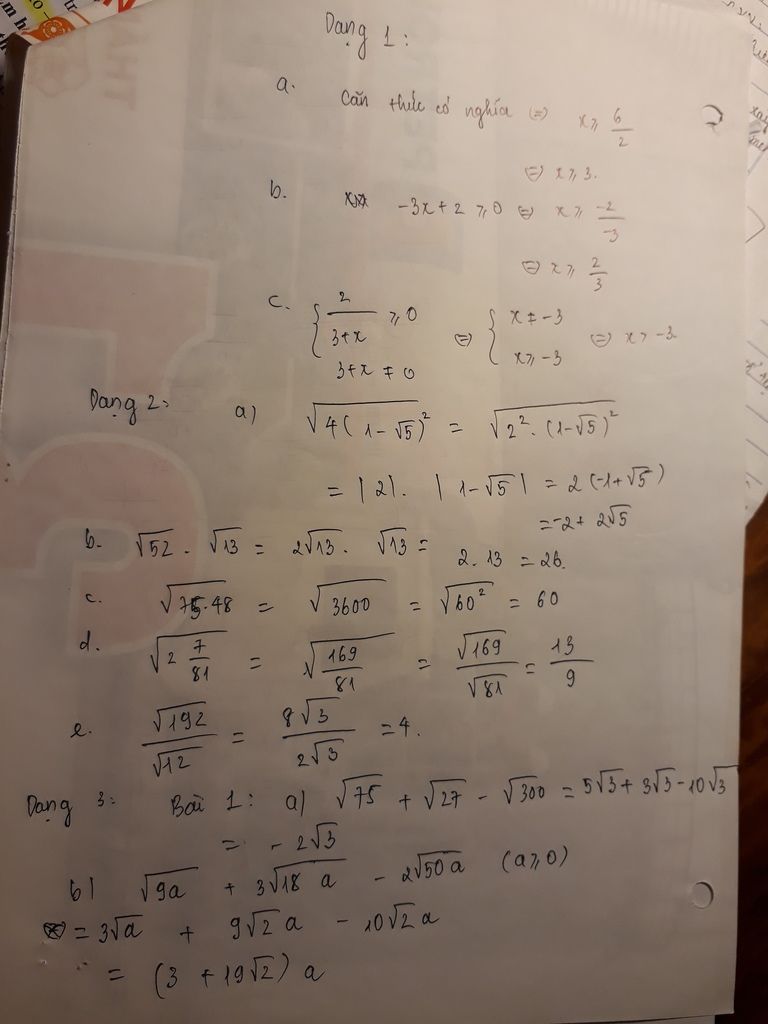 Dạng 1:
a. Căn thức có nghĩa ⇔ x ≥ 6/2
⇔ x ≥ 3.
b. -3x + 2 ≥ 0 ⇔ x ≥ -2/-3
⇔ x ≥ 2/3
c. { 2/(3+x) ≥ 0 ; 3+x ≠ 0 ⇔ { x ≠ -3 ; x ≥ -3 ⇔ x > -3
Dạng 2: a) √(4(1-√5)²) = √(2².(1-√5)²)
= |2|. |1-√5| = 2(-1+√5)
= -2 + 2√5
b. √52 . √13 = 2√13 . √13 = 2.13 = 26.
c. √(75.48) = √3600 = √(60²) = 60
d. √(2 7/81) = √(169/81) = √169/√81 = 13/9
e. √192/√12 = 8√3/2√3 = 4.
Dạng 3: Bài 1: a) √75 + √27 - √300 = 5√3 + 3√3 - 10√3
= -2√3
b) √9a + 3√18a - 2√50a (a ≥ 0)
= 3√a + 9√2a - 10√2a
= (3 + 19√2) a